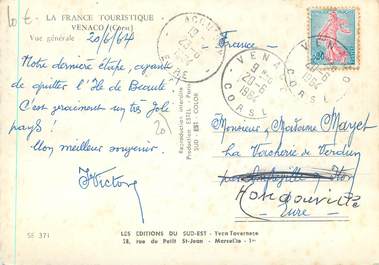 LA FRANCE TOURISTIQUE
VENACO (Corse)
Vue générale
20/6/64
Notre dernière étape, avant
de quitter l'Ile de Beauté.
C'est vraiment un très joli
pays!
Mon meilleur souvenir.
France
Monsieur, Madame Mazet
La Vacherie de Verdun
Eure
VENACO
20-6
1964
CORSE
VENACO
20-6
1964
CORSE
EURE
Reproduction interdite
Production ESTEL - Paris
SUD - EST COLOR
SE 371
LES EDITIONS DU SUD-EST - Yvon Tavernese
28, rue du Petit St-Jean - Marseille - 1er